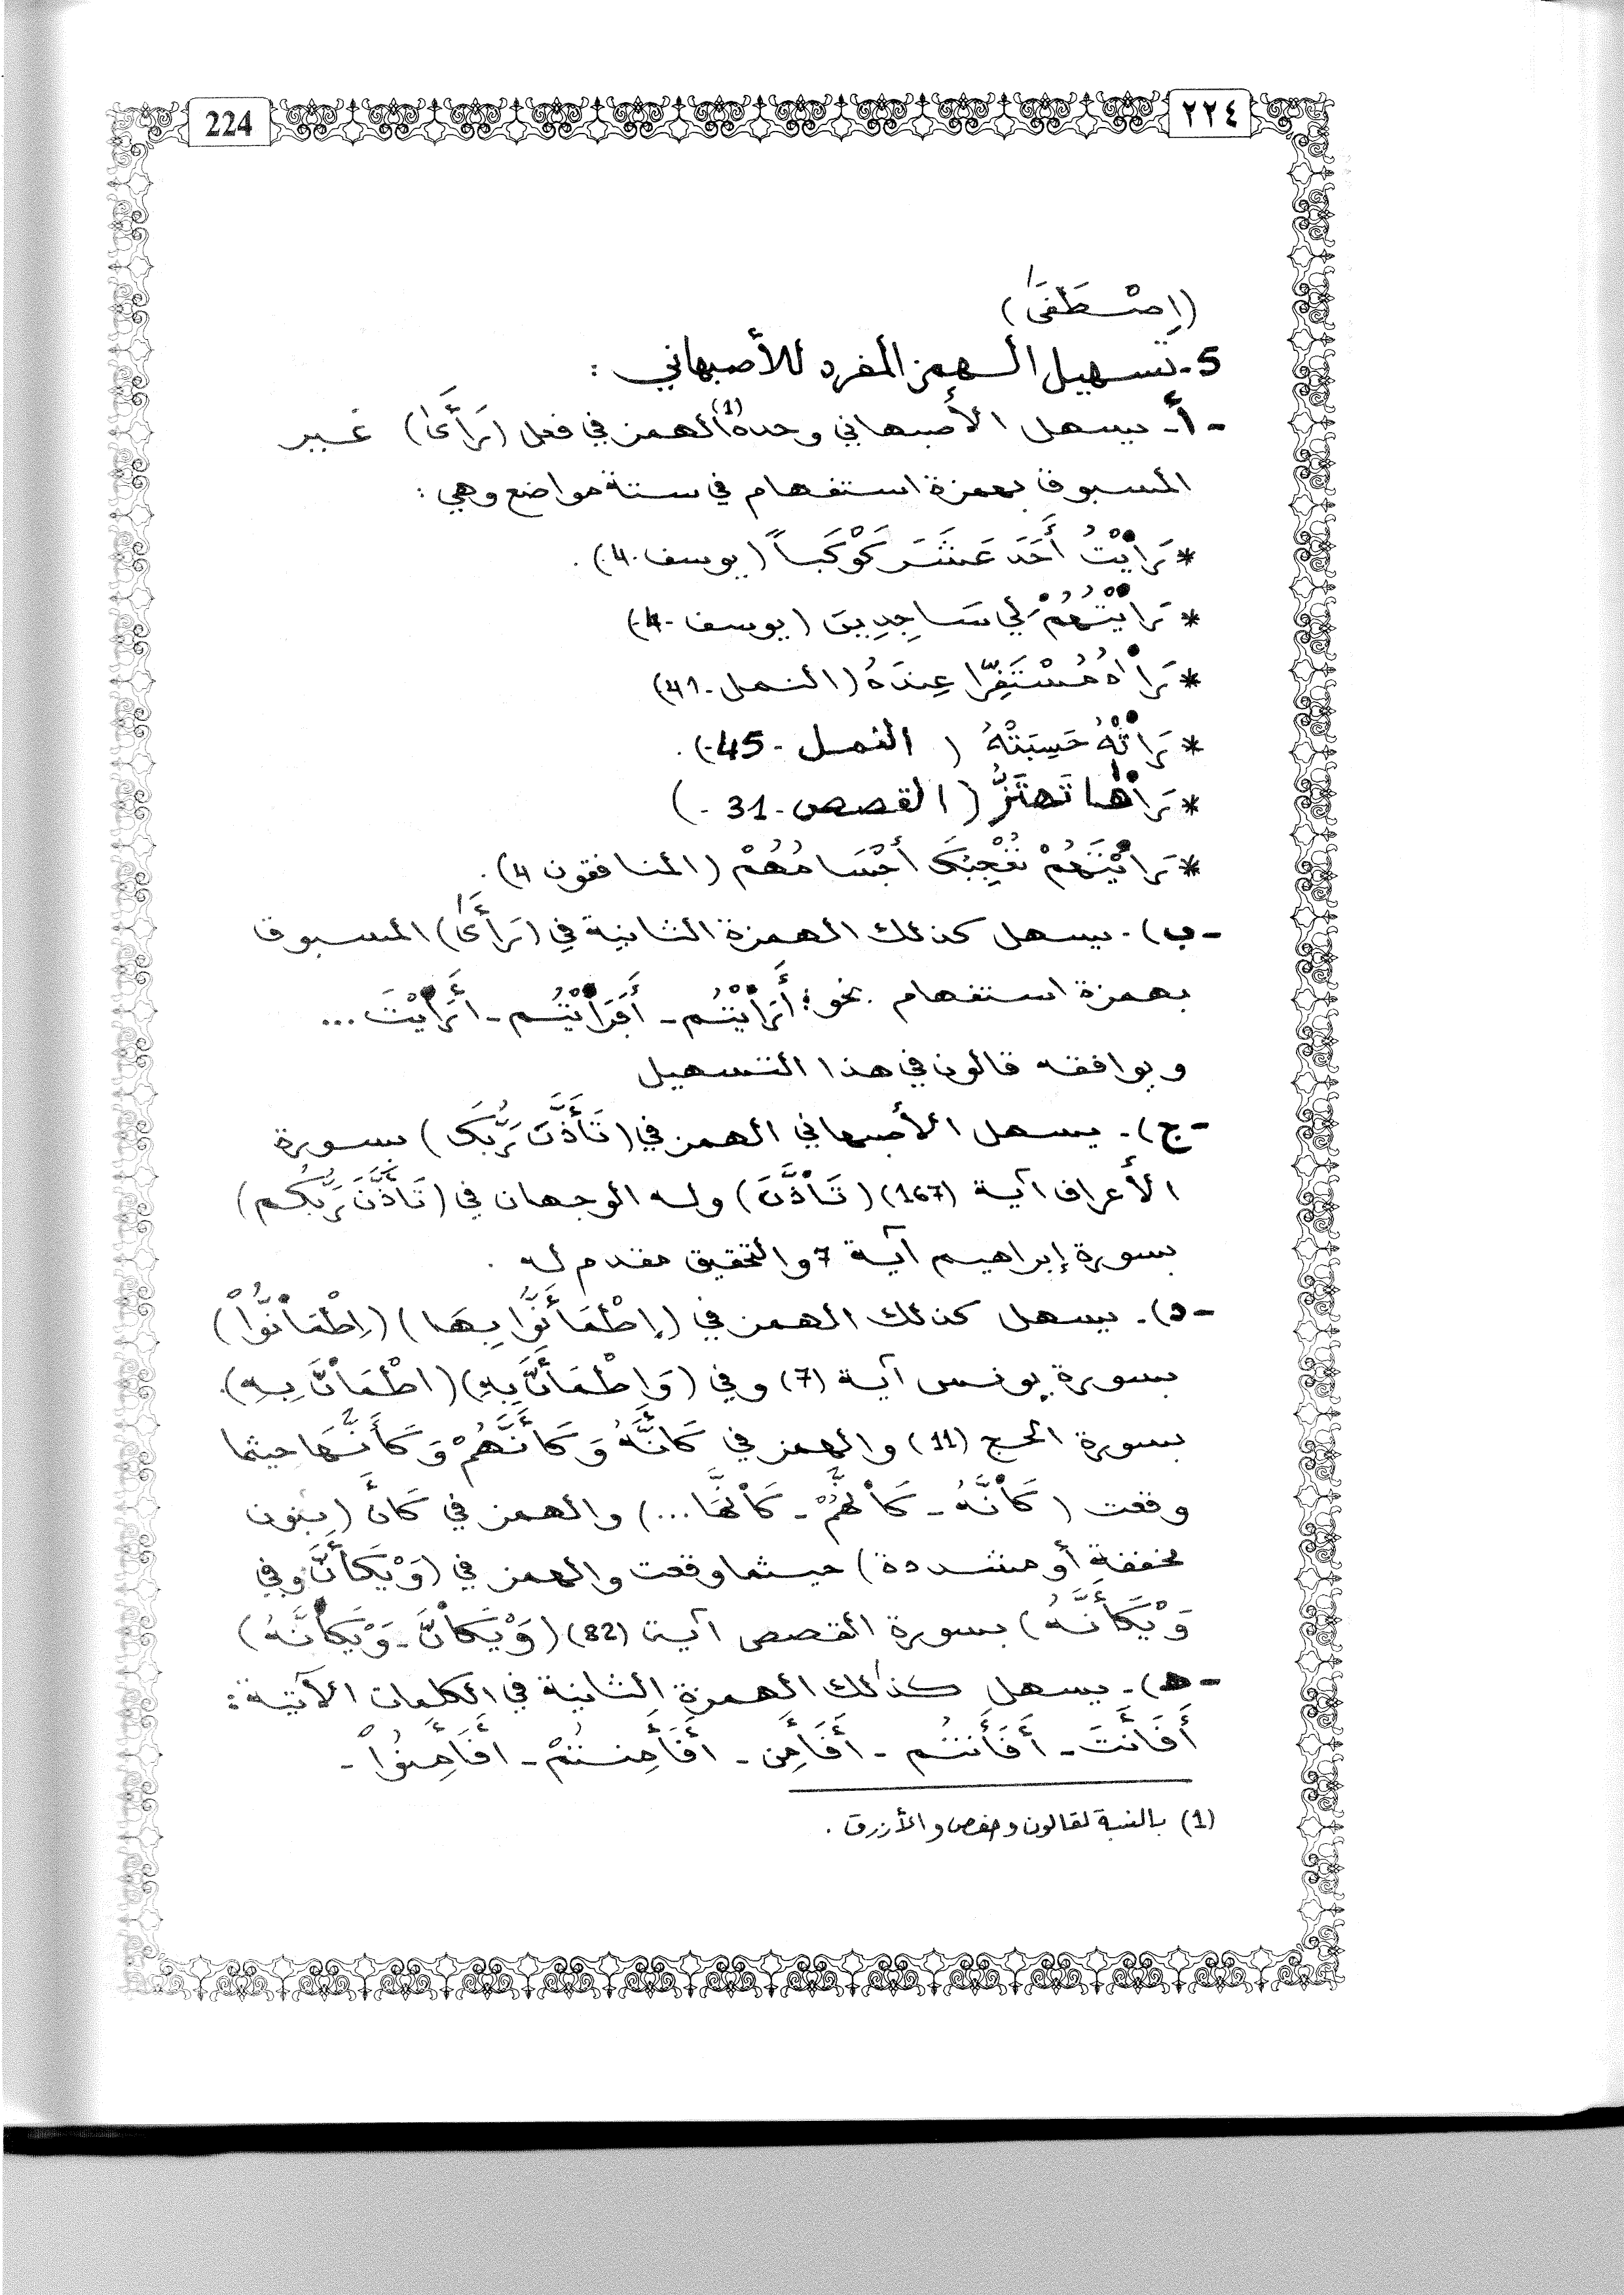 224
٢٢٤
(اِصْطَفَىٰ)
5- تسهيل الهمز المفرد للأصبهاني :
- أ - يسهل الأصبهاني وحده(1) الهمز في فعل (رَأَىٰ) غير
المسبوق بهمزة استفهام في ستة مواضع وهي :
* رَاَيْتُ أَحَدَ عَشَرَ كَوْكَباً (يوسف - 4).
* رَاَيْتُهُمْ لِي سَاجِدِين (يوسف - 4)
* رَاَهُ مُسْتَقِرّاً عِندَهُ (النمل - 41)
* رَاَتْهُ حَسِبَتْهُ ( النمل - 45).
* رَاَهَا تَهْتَزُّ ( القصص - 31 - )
* رَاَيْتَهُمْ تُعْجِبُكَ أَجْسَامُهُمْ (المنافقون 4).
- ب) - يسهل كذلك الهمزة الثانية في (رَأَىٰ) المسبوق
بهمزة استفهام . نحو : أَرَاَيْتُم - أَفَرَاَيْتُم - أَرَاَيْتَ ...
ويوافقه قالون في هذا التسهيل
- ج) - يسهل الأصبهاني الهمز في (تَأَذَّنَ رَبُّكَ) بسورة
الأعراف آية (167) (تَاَذَّنَ) وله الوجهان في (تَأَذَّنَ رَبُّكُم)
بسورة إبراهيم آية 7 والتحقيق مقدم له .
- د) - يسهل كذلك الهمز في (إِطْمَأَنُّوا بِهَا) (اِطْمَاَنُّواْ)
بسورة يونس آية (7) وفي (وَاِطْمَأَنَّ بِهِ) (اطْمَاَنَّ بِهِ).
بسورة الحج (11) والهمز في كَأَنَّهُ وَكَأَنَّهُمْ وَكَأَنَّهَا حيثما
وقعت (كَاَنَّهُ - كَاَنَّهُمْ - كَاَنَّهَا ...) والهمز في كَأَنَّ (بنون
مخففة أو مشددة) حيثما وقعت والهمز في (وَيْكَأَنَّ وفي
وَيْكَأَنَّهُ) بسورة القصص آية (82) (وَيْكَاَنَّ - وَيْكَاَنَّهُ)
- هـ) - يسهل كذلك الهمزة الثانية في الكلمات الآتية :
أَفَأَنتَ - أَفَأَنتُم - أَفَأَمِنَ - أَفَأَمِنتُمْ - أَفَأَمِنُواْ -
(1) بالنسبة لقالون وحفص والأزرق .